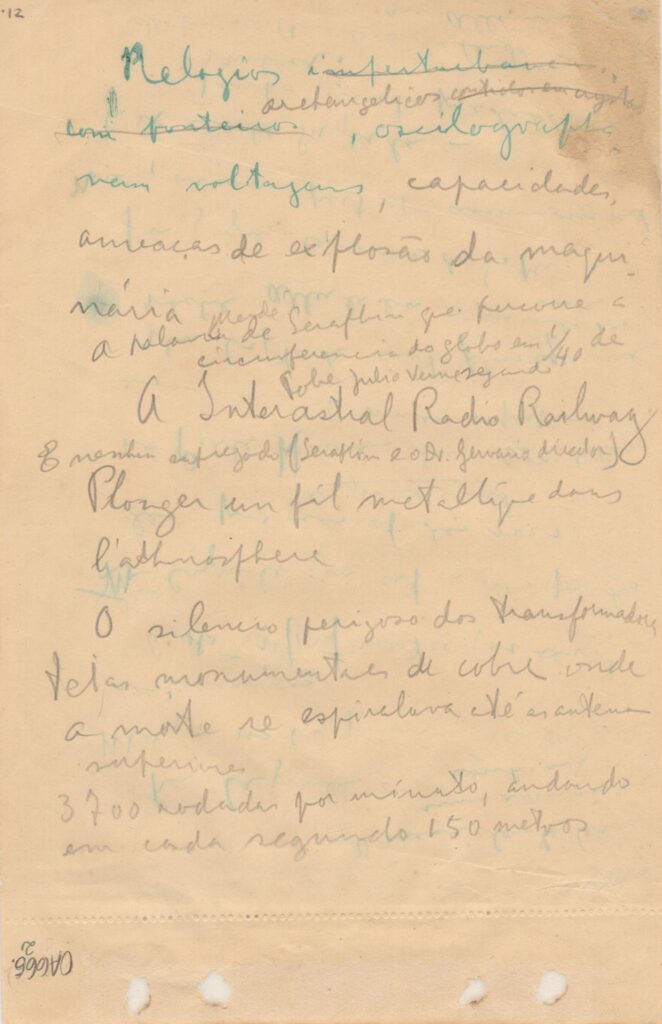 12
Relogios imperturbaveis
archangelicos contidos em crystal
com ponteiros, oscilographos
nem voltagens, capacidades,
ameaças de explosão da maqui-
nária
a palavra de Seraphim que percorre a
circumferencia do globo em 1/40 de
segundo
Pobre Julio Verne
A Interastral Radio Railway
E nenhum empregado (Seraphim e o Dr. Gervasio director)
Plonger un fil metallique dans
l'athmosphere
O silencio perigoso dos transformadores
teias monumentaes de cobre onde
a morte se espiralava até as antenas
superiores
3700 rodadas por minuto, andando
em cada segundo 150 metros
OA666.
2